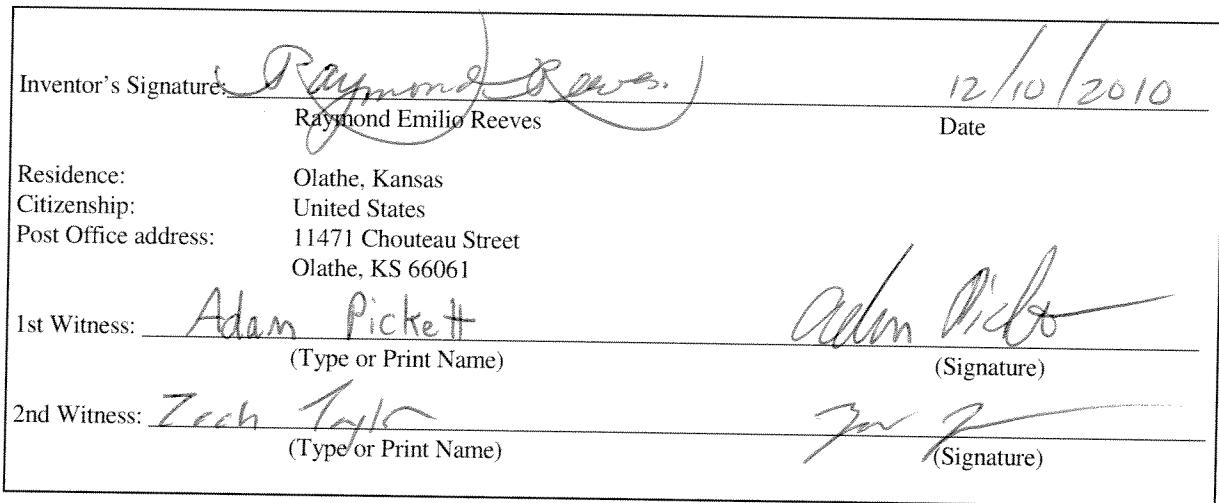 Inventor's Signature: Raymond Reeves. 12/10/2010
Raymond Emilio Reeves Date
Residence: Olathe, Kansas
Citizenship: United States
Post Office address: 11471 Chouteau Street
Olathe, KS 66061
1st Witness: Adam Pickett Adam
(Type or Print Name) (Signature)
2nd Witness: Zach Taylor
(Type or Print Name) (Signature)